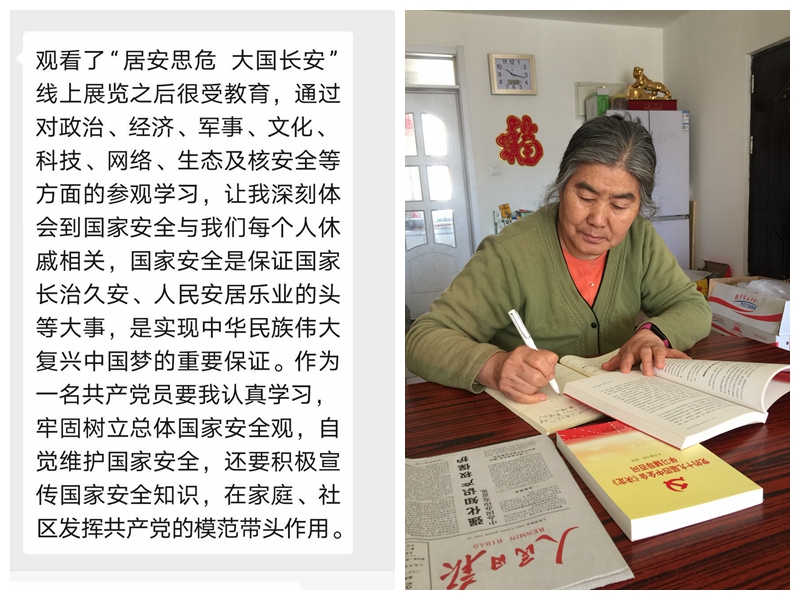 观看了“居安思危 大国长安”
线上展览之后很受教育，通过
对政治、经济、军事、文化、
科技、网络、生态及核安全等
方面的参观学习，让我深刻体
会到国家安全与我们每个人休
戚相关，国家安全是保证国家
长治久安、人民安居乐业的头
等大事，是实现中华民族伟大
复兴中国梦的重要保证。作为
一名共产党员要我认真学习，
牢固树立总体国家安全观，自
觉维护国家安全，还要积极宣
传国家安全知识，在家庭、社
区发挥共产党的模范带头作用。
福
党的十九届四中全会《决定》
学习辅导百问
强化知识产权保护
人民日报
RENMIN RIBAO